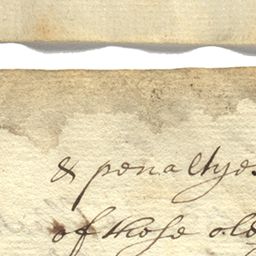 & penaltyes
of those old